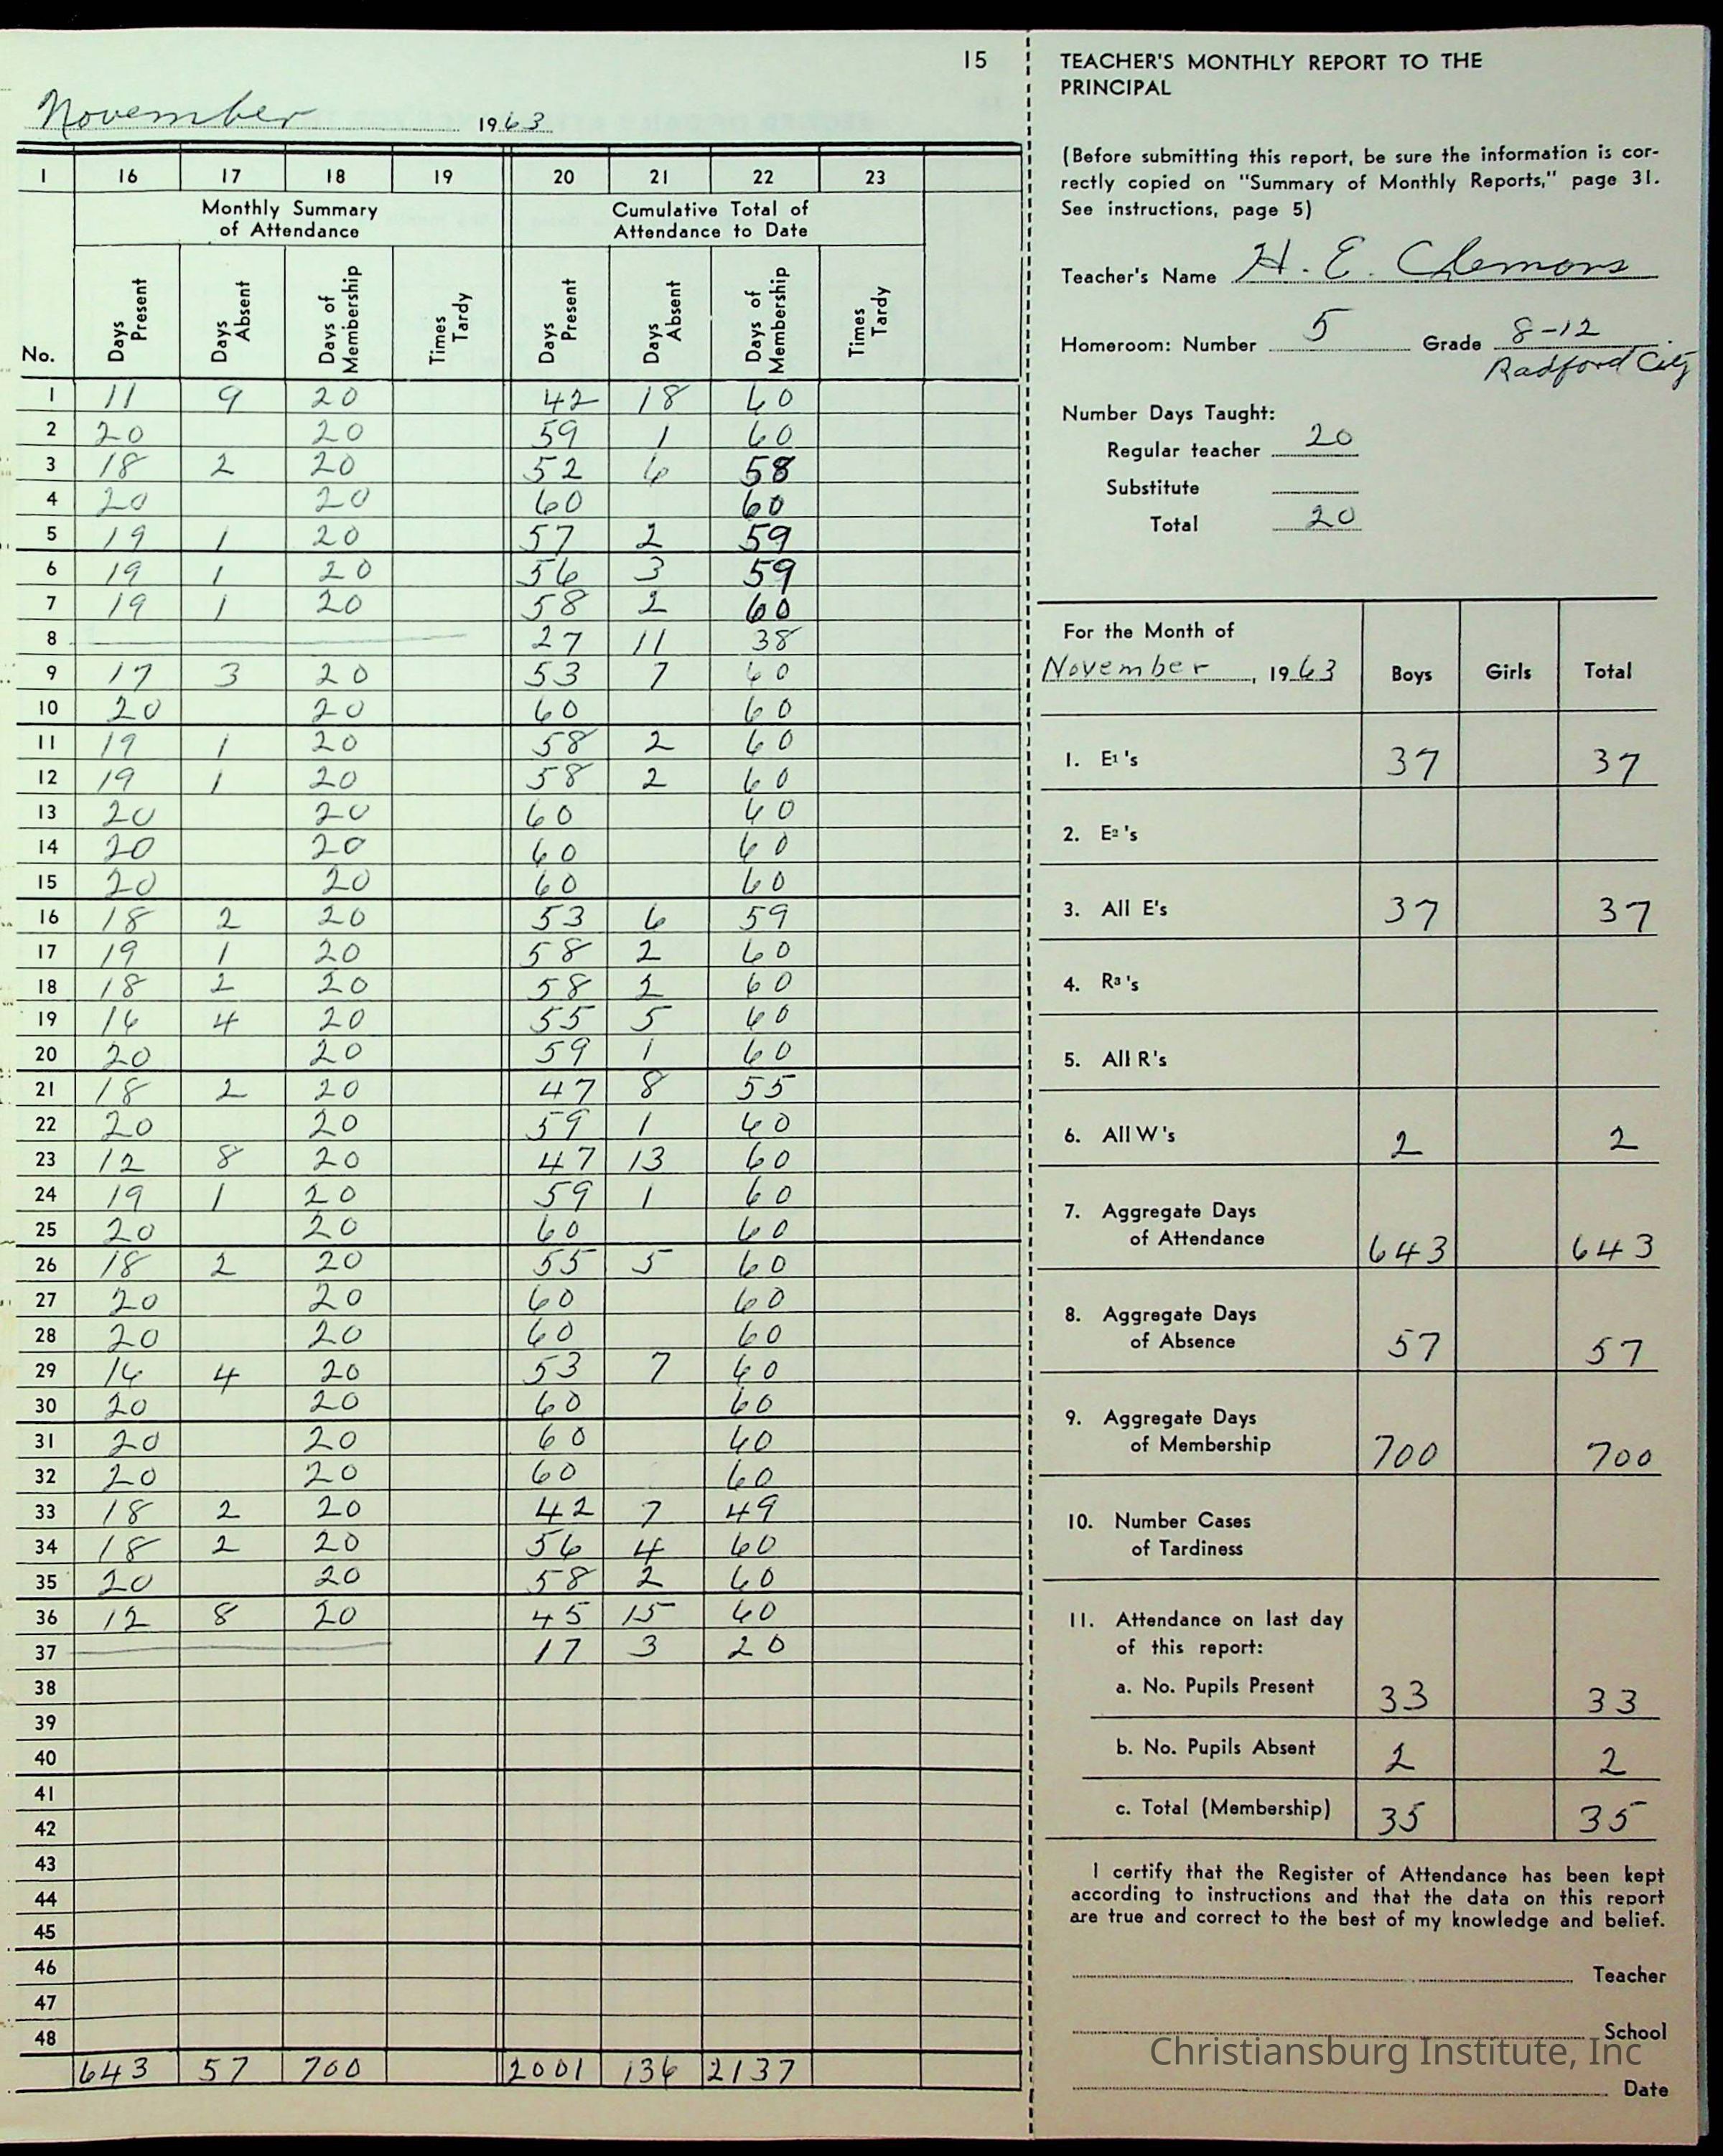 15
November 1963
1 16 17 18 19 20 21 22 23
Monthly Summary of Attendance Cumulative Total of Attendance to Date
No. Days Present Days Absent Days of Membership Times Tardy Days Present Days Absent Days of Membership Times Tardy
1 11 9 20 42 18 60
2 20 20 59 1 60
3 18 2 20 52 6 58
4 20 20 60 60
5 19 1 20 57 2 59
6 19 1 20 56 3 59
7 19 1 20 58 2 60
8 27 11 38
9 17 3 20 53 7 60
10 20 20 60 60
11 19 1 20 58 2 60
12 19 1 20 58 2 60
13 20 20 60 60
14 20 20 60 60
15 20 20 60 60
16 18 2 20 53 6 59
17 19 1 20 58 2 60
18 18 2 20 58 2 60
19 16 4 20 55 5 60
20 20 20 59 1 60
21 18 2 20 47 8 55
22 20 20 59 1 60
23 12 8 20 47 13 60
24 19 1 20 59 1 60
25 20 20 60 60
26 18 2 20 55 5 60
27 20 20 60 60
28 20 20 60 60
29 16 4 20 53 7 60
30 20 20 60 60
31 20 20 60 60
32 20 20 60 60
33 18 2 20 42 7 49
34 18 2 20 56 4 60
35 20 20 58 2 60
36 12 8 20 45 15 60
37 17 3 20
38
39
40
41
42
43
44
45
46
47
48
643 57 700 2001 136 2137
TEACHER'S MONTHLY REPORT TO THE
PRINCIPAL
(Before submitting this report, be sure the information is cor-
rectly copied on "Summary of Monthly Reports," page 31.
See instructions, page 5)
Teacher's Name H. E. Clemons
Homeroom: Number 5 Grade 8-12
Radford City
Number Days Taught:
Regular teacher 20
Substitute
Total 20
For the Month of
November, 1963 Boys Girls Total
1. E1's 37 37
2. E2's
3. All E's 37 37
4. R3's
5. All R's
6. All W's 2 2
7. Aggregate Days
of Attendance 643 643
8. Aggregate Days
of Absence 57 57
9. Aggregate Days
of Membership 700 700
10. Number Cases
of Tardiness
11. Attendance on last day
of this report:
a. No. Pupils Present 33 33
b. No. Pupils Absent 2 2
c. Total (Membership) 35 35
I certify that the Register of Attendance has been kept
according to instructions and that the data on this report
are true and correct to the best of my knowledge and belief.
Teacher
School
Christiansburg Institute, Inc
Date